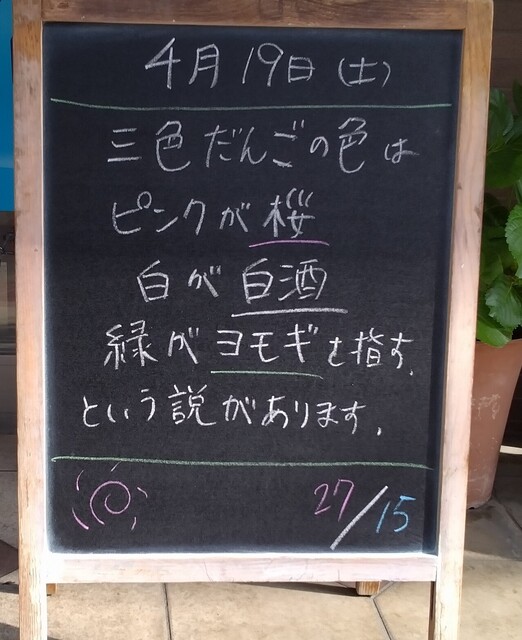 4月19日(土)
三色だんごの色は
ピンクが桜
白が白酒
緑がヨモギを指す.
という説があります.
27/15